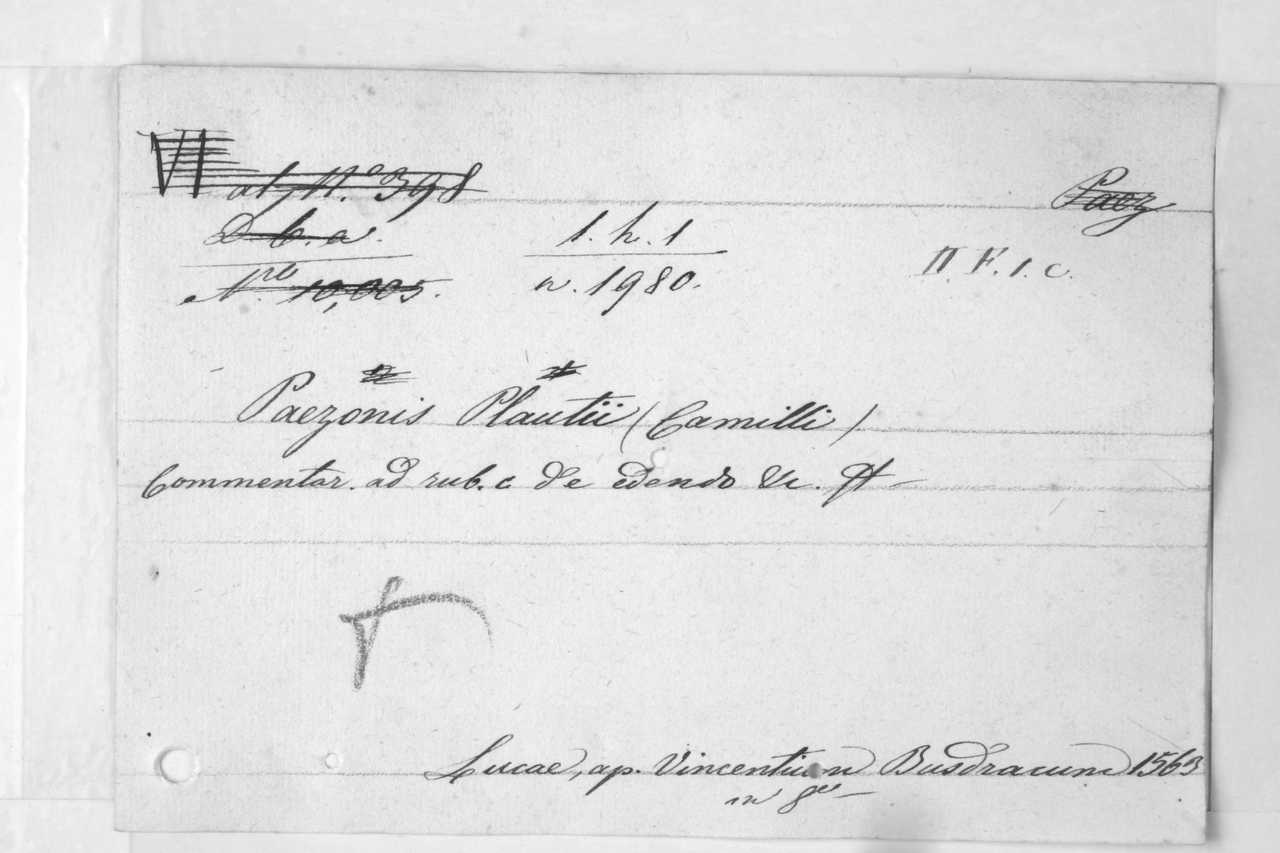 VI al N.º 398
Paez
D. b. a.
1. h. 1
II F. 1. c.
N.ro 10,005.
n. 1980.
Paezonis Plautii (Camilli)
Commentar. ad rub. c de edendo &c.
Lucae, ap. Vincentium Busdracum 1563
in 8.º